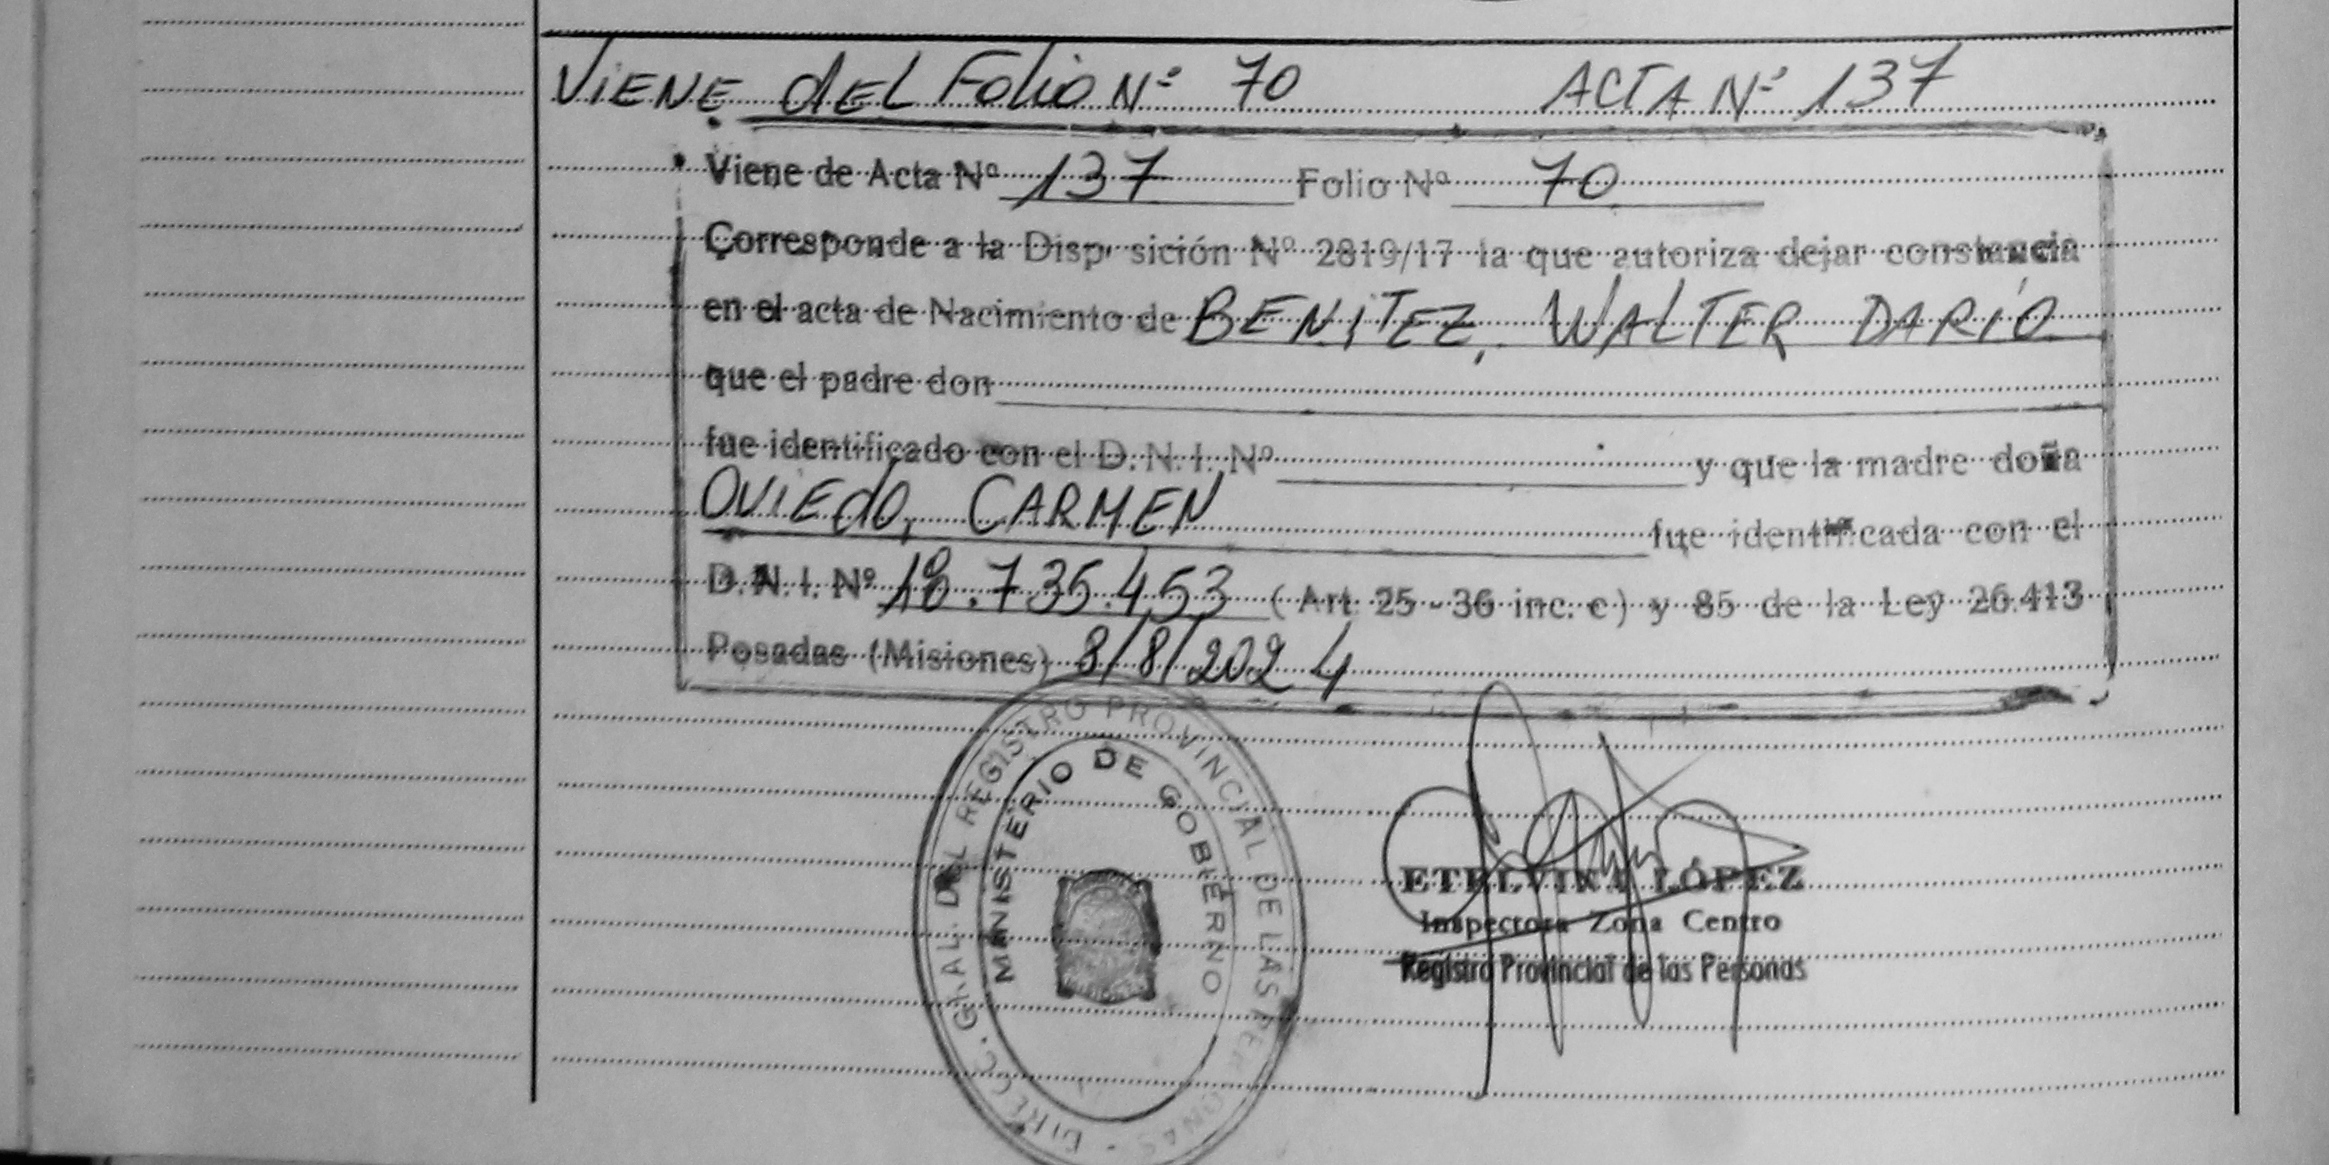 VIENE DEL FOLIO Nº 70 ACTA Nº 137
Viene de Acta Nº 137 Folio Nº 70
Corresponde a la Disp sición Nº 2819/17 la que autoriza dejar constancia
en el acta de Nacimiento de BENITEZ, WALTER DARÍO
que el padre don
fue identificado con el D.N.I. Nº y que la madre doña
OVIEDO, CARMEN fue identificada con el
D.N.I. Nº 18.735.453 (Art. 25-36 inc. c) y 85 de la Ley 26.413
Posadas (Misiones) 8/8/2024
DIRECC. GRAL. DEL REGISTRO PROVINCIAL DE LAS PERSONAS
MINISTERIO DE GOBIERNO
ETELVINA LÓPEZ
Inspectora Zona Centro
Registro Provincial de las Personas